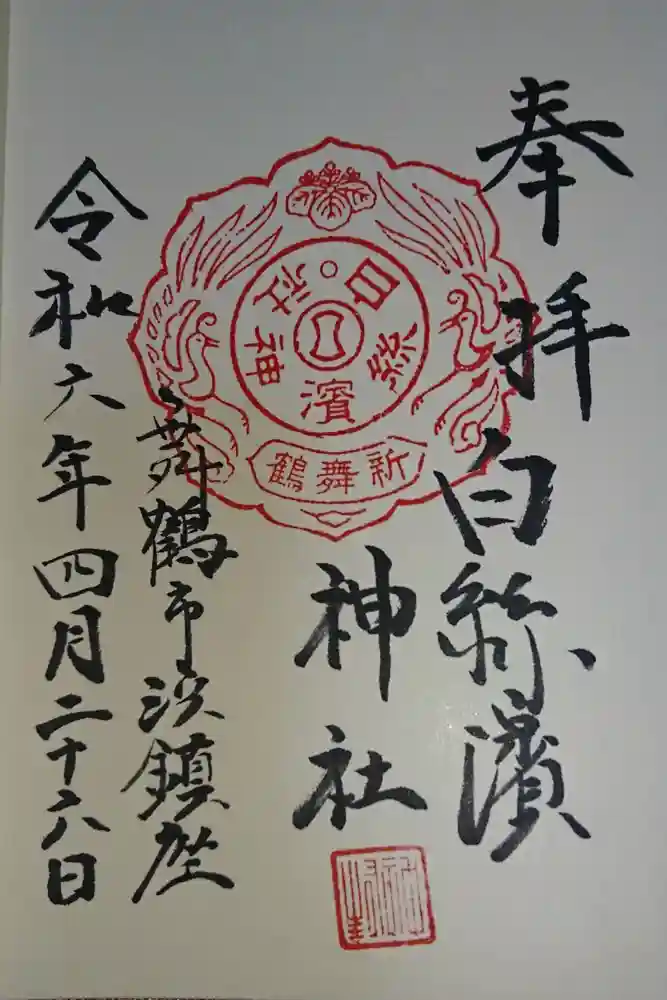 奉拝
白絲濱
神社
舞鶴市浜鎮座
令和六年四月二十六日
白絲濱神社
新舞鶴